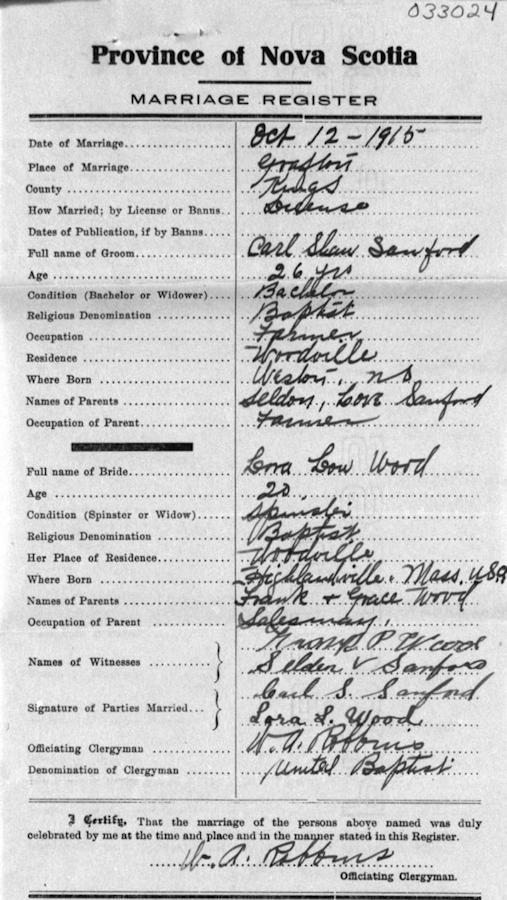 033024
Province of Nova Scotia
MARRIAGE REGISTER
Date of Marriage Oct 12 - 1915
Place of Marriage Grafton
County Kings
How Married; by License or Banns License
Dates of Publication, if by Banns
Full name of Groom Carl Shaw Sanford
Age 26 yrs
Condition (Bachelor or Widower) Bachelor
Religious Denomination Baptist
Occupation Farmer
Residence Woodville
Where Born Weston, NS
Names of Parents Seldon, Sanford
Occupation of Parent Farmer
Full name of Bride Wood
Age 20
Condition (Spinster or Widow) Spinster
Religious Denomination Baptist
Her Place of Residence Woodville
Where Born Highlandville, Mass, USA
Names of Parents Frank + Grace Wood
Occupation of Parent Salesman
Names of Witnesses Frank P Wood
Selden V Sanford
Signature of Parties Married Carl S. Sanford
Lora L. Wood
Officiating Clergyman W. A. Robbins
Denomination of Clergyman United Baptist
I Certify, That the marriage of the persons above named was duly
celebrated by me at the time and place and in the manner stated in this Register.
W. A. Robbins
Officiating Clergyman.